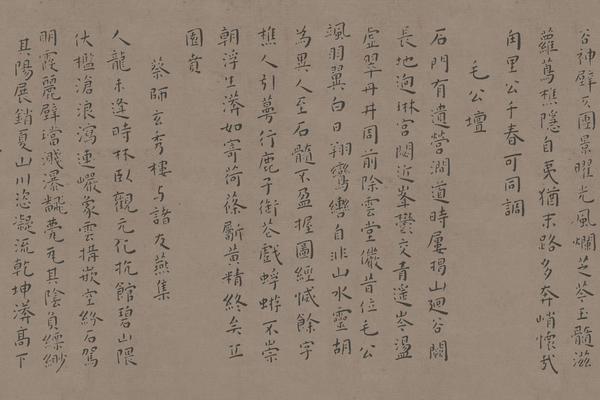 谷神躄𠀋團景曜光風爛芝苓玉髓滋
蘿蔦樵隱自夷猶末路多奔峭懷哉
甪里公千春可同調
毛公壇
石門有遺營澗道時屢揭山廻谷闕
長地迥琳宮閟近峯鬱交青遥岑盪
虚翠丹井周前除雲堂儼昔位毛公
颯羽翼白日翔鸞轡自非山水靈胡
為異人至石髓不盈握圖經慽餘字
樵人引蕚行鹿子銜苍戲蜉蝣不崇
朝浮生漭如寄荷蓧斸黄精終矣丘
園賁
蔡師玄秀樓与諸友燕集
人龍未逢時林卧觀元化抗館碧山隈
伏檻滄浪瀉連巘象雲構嵌空紛石駕
明霞麗璧璫濺瀑甃元其陰負縹緲
其陽展銷夏山川恣凝流乾坤漭高下